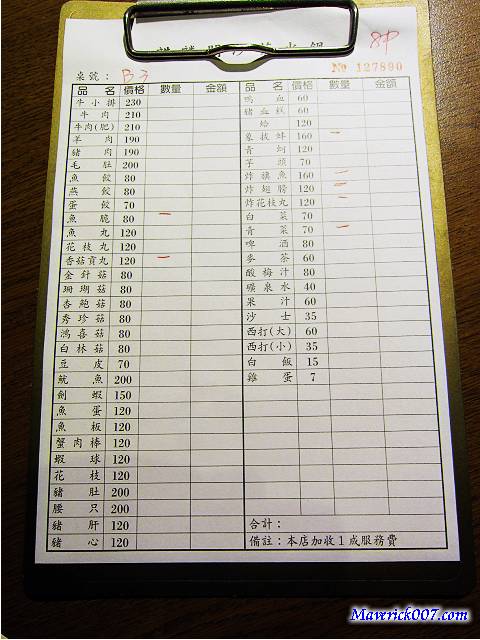 8P
桌號： B3
№ 127890
品名 價格 數量 金額
牛小排 230
牛肉 210
牛肉(肥) 210
羊肉 190
豬肉 190
毛肚 200
魚餃 80
燕餃 80
蛋餃 70
魚脆 80 一
魚丸 120
花枝丸 120
香菇貢丸 120 一
金針菇 80
珊瑚菇 80
杏鮑菇 80
秀珍菇 80
鴻喜菇 80
白林菇 80
豆皮 70
魷魚 200
劍蝦 150
魚蛋 120
魚板 120
蟹肉棒 120
蝦球 120
花枝 120
豬肚 200
腰只 200
豬肝 120
豬心 120
品名 價格 數量 金額
鴨血 60
豬血糕 60
蛤 120
象拔蚌 160 一
青蚵 120
芋頭 70
炸旗魚 160 一
炸翅膀 120 二
炸花枝丸 120 一
白菜 70
青菜 70 一
啤酒 80
麥茶 60
酸梅汁 80
礦泉水 40
果汁 60
沙士 35
西打(大) 60
西打(小) 35
白飯 15
雞蛋 7
合計：
備註：本店加收1成服務費
Maverick007.com